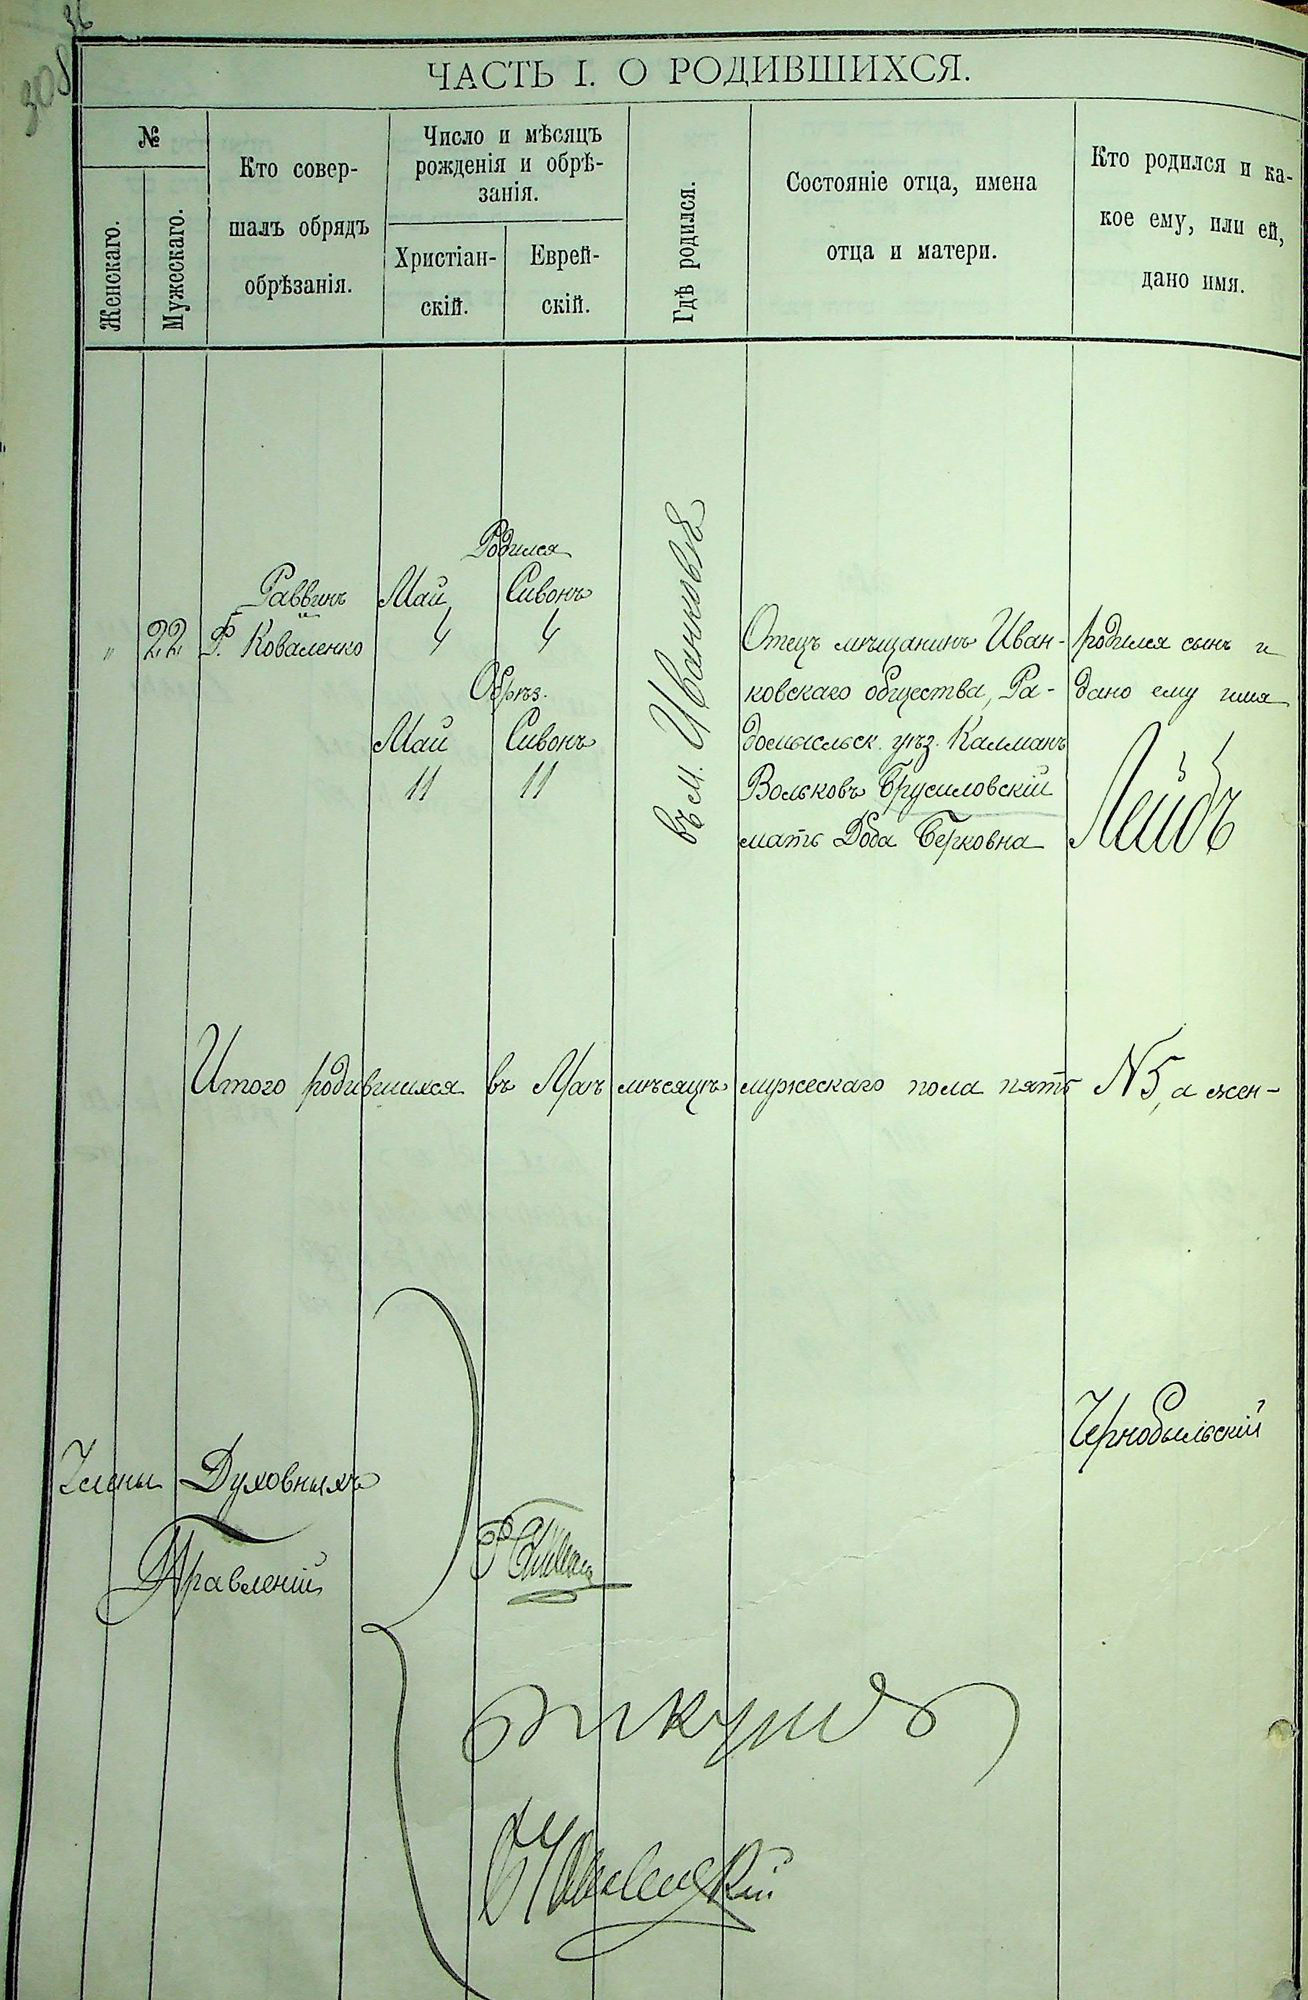 36
308
ЧАСТЬ I. О РОДИВШИХСЯ.
№
Женскаго.
Мужескаго.
Кто совер-
шалъ обрядъ
обрѣзанія.
Число и мѣсяцъ
рожденія и обрѣ-
занія.
Христіан-
скій.
Еврей-
скій.
Гдѣ родился.
Состояніе отца, имена
отца и матери.
Кто родился и ка-
кое ему, или ей,
дано имя.
Родился
Раввинъ Май Сивонъ
" 22 Г. Коваленко 4 4
Обрѣз.
Май Сивонъ
11 11
въ м. Иванковѣ
Отецъ мѣщанинъ Иван-
ковскаго общества, Ра-
домысльск. уѣз. Калманъ
Вольковъ Брусиловскій
мать Доба Берковна
родился сынъ и
дано ему имя
Лейбъ
Итого родившихся въ Маѣ мѣсяцѣ мужескаго пола пять №5, а жен-
Чернобыльскій
Члены Духовныхъ
Правленій